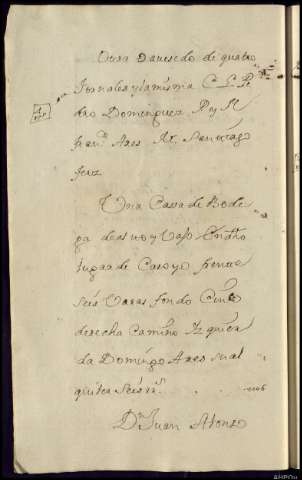 Otra Dauesedo de quatro
Jornales y la misma C L Pe
dro Dominguez P y N
fran.co Ares Nt. Santiago
feiz
Una Casa de Bode
ga de alto y vajo En dho
lugar de Caroyo frente
seis Varas fondo Cinco
derecha Camino Yzquier
da Domingo Ares su al
quiler Seis rs.
D.n Juan Alonso